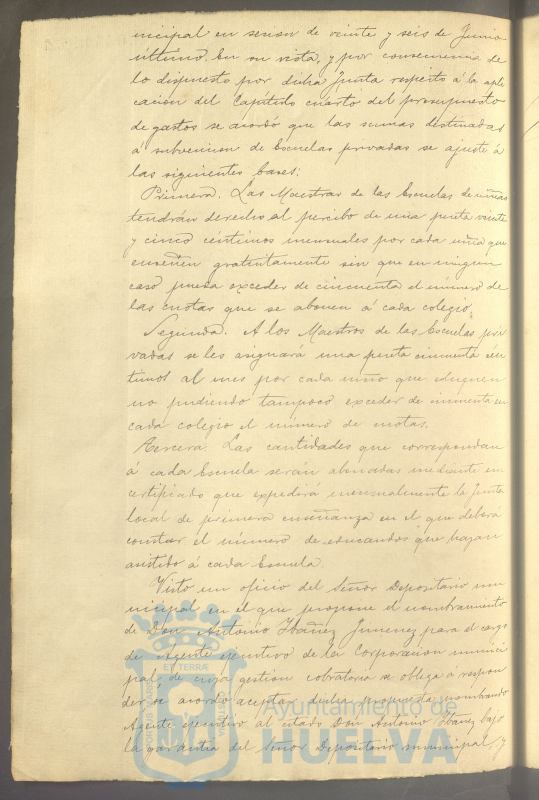 nicipal en sesion de veinte y seis de Junio
último. En su vista, y por consecuencia de
lo dispuesto por dicha Junta respecto á la apli
cación del Capítulo cuarto del presupuesto
de gastos se acordó que las sumas destinadas
á subvencion de Escuelas privadas se ajuste á
las siguientes bases:
Primera. Las Maestras de las Escuelas de niñas
tendrán derecho al percibo de una peseta veinte
y cinco céntimos mensuales por cada niña que
enseñen gratuitamente sin que en ningun
caso pueda exceder de cincuenta el número de
las cuotas que se abonen á cada colegio.
Segunda. A los Maestros de las Escuelas pri
vadas se les asignará una peseta cincuenta cén
timos al mes por cada niño que eduquen
no pudiendo tampoco exceder de cincuenta en
cada colegio el número de cuotas.
Tercera. Las cantidades que correspondan
á cada Escuela serán abonadas mediante un
certificado que expedirá mensualmente la Junta
local de primera enseñanza en el que deberá
constar el número de educandos que hayan
asistido á cada Escuela.
Visto un oficio del Señor Depositario mu
nicipal en el que propone el nombramiento
de Don Antonio Ibañez Jimenez para el cargo
de Agente ejecutivo de la Corporacion munici
pal, de cuya gestion cobratoria se obliga á respon
der, se acordó aceptar dicha propuesta nombrando
Agente ejecutivo al citado Don Antonio Ibañez bajo
la garantia del Señor Depositario municipal, y
ET TERRÆ
PORTUS MARIS
Ayuntamiento de
HUELVA